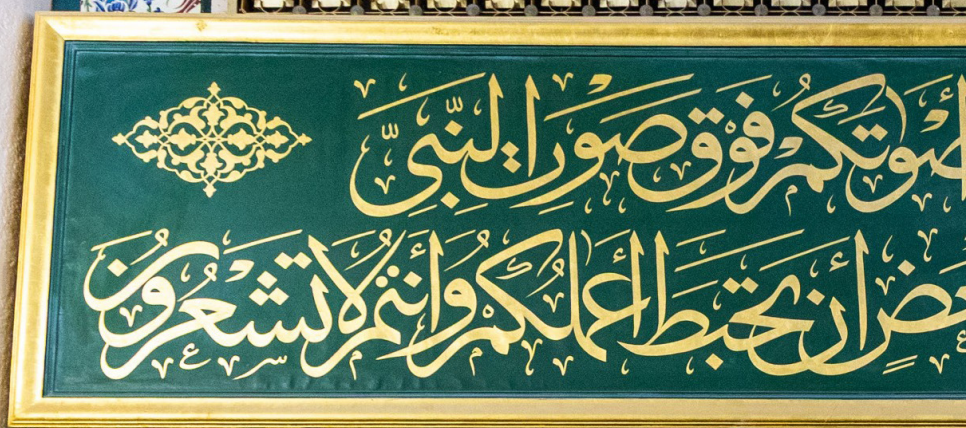 أصواتكم فوق صوت النبي
بعض أن تحبط أعملكم وأنتم لا تشعرون